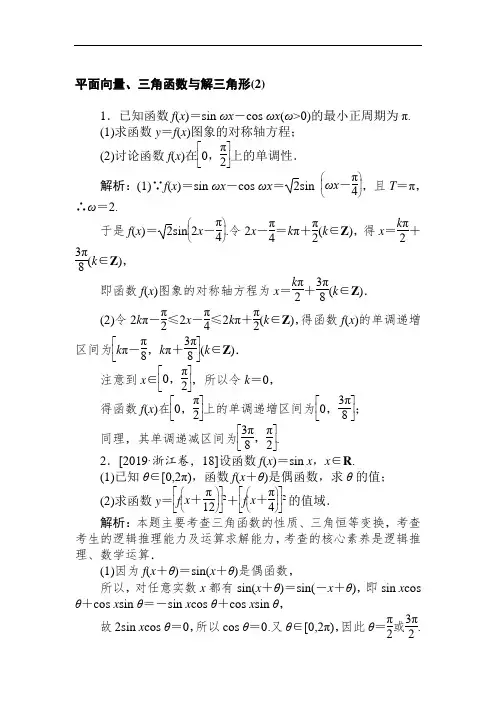 平面向量、三角函数与解三角形(2)
1．已知函数 f(x)＝sin ωx－cos ωx(ω>0)的最小正周期为 π.
(1)求函数 y＝f(x)图象的对称轴方程；
(2)讨论函数 f(x)在[0，π/2]上的单调性．
解析：(1)∵f(x)＝sin ωx－cos ωx＝√2sin (ωx－π/4)，且 T＝π，
∴ω＝2.
于是 f(x)＝√2sin(2x－π/4).令 2x－π/4＝kπ＋π/2(k∈Z)，得 x＝kπ/2＋
3π/8(k∈Z)，
即函数 f(x)图象的对称轴方程为 x＝kπ/2＋3π/8(k∈Z)．
(2)令 2kπ－π/2≤2x－π/4≤2kπ＋π/2(k∈Z)，得函数 f(x)的单调递增
区间为[kπ－π/8，kπ＋3π/8](k∈Z)．
注意到 x∈[0，π/2]，所以令 k＝0，
得函数 f(x)在[0，π/2]上的单调递增区间为[0，3π/8]；
同理，其单调递减区间为[3π/8，π/2].
2．[2019·浙江卷，18]设函数 f(x)＝sin x，x∈R.
(1)已知 θ∈[0,2π)，函数 f(x＋θ)是偶函数，求 θ 的值；
(2)求函数 y＝[f(x＋π/12)]²＋[f(x＋π/4)]²的值域．
解析：本题主要考查三角函数的性质、三角恒等变换，考查
考生的逻辑推理能力及运算求解能力，考查的核心素养是逻辑推
理、数学运算．
(1)因为 f(x＋θ)＝sin(x＋θ)是偶函数，
所以，对任意实数 x 都有 sin(x＋θ)＝sin(－x＋θ)，即 sin xcos
θ＋cos xsin θ＝－sin xcos θ＋cos xsin θ，
故 2sin xcos θ＝0，所以 cos θ＝0.又 θ∈[0,2π)，因此 θ＝π/2或3π/2.